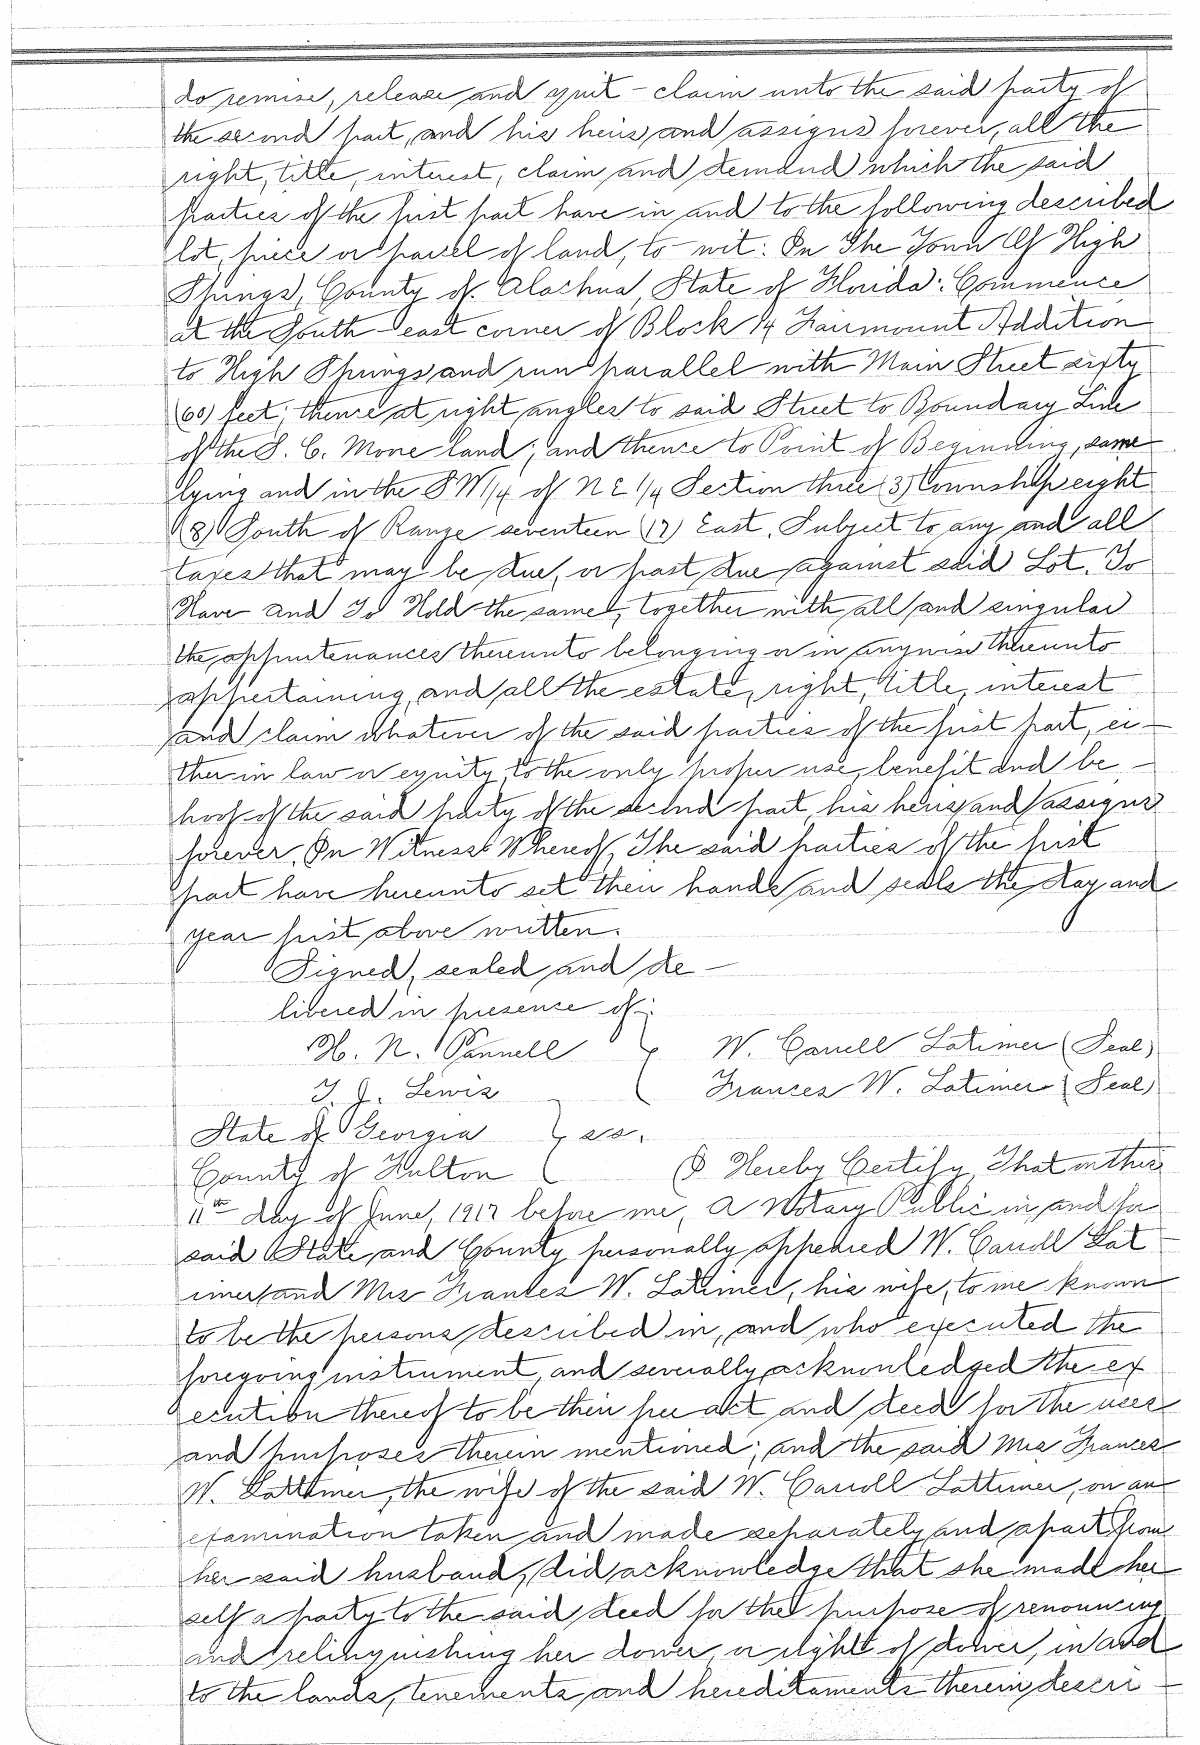 do remise, release and quit-claim unto the said party of
the second part, and his heirs and assigns forever, all the
right, title, interest, claim and demand which the said
parties of the first part have in and to the following described
lot, piece or parcel of land, to wit: In The Town Of High
Springs, County of Alachua, State of Florida: Commence
at the South-east corner of Block 14 Fairmount Addition
to High Springs and run parallel with Main Street sixty
(60) feet; thence at right angles to said Street to Boundary Line
of the S. C. Mone land; and thence to Point of Beginning, same
lying and in the SW 1/4 of NE 1/4 Section three (3) Township eight
(8) South of Range seventeen (17) East. Subject to any and all
taxes that may be due, or past due against said Lot. To
Have and To Hold the same, together with all and singular
the appurtenances thereunto belonging or in anywise thereunto
appertaining, and all the estate, right, title, interest
and claim whatever of the said parties of the first part, ei-
ther in law or equity, to the only proper use, benefit and be-
hoof of the said party of the second part, his heirs and assigns
forever. In Witness Whereof, The said parties of the first
part have hereunto set their hands and seals the day and
year first above written.
Signed, sealed and de-
livered in presence of:
H. N. Pannell } W. Carrell Latimer (Seal)
T. J. Lewis Frances W. Latimer (Seal)
State of Georgia } ss.
County of Fulton I Hereby Certify, That on this
11th day of June, 1917 before me, A Notary Public in and for
said State and County personally appeared W. Carroll Lat-
imer and Mrs Frances W. Latimer, his wife, to me known
to be the persons described in, and who executed the
foregoing instrument, and severally acknowledged the ex
ecution thereof to be their free act and deed for the uses
and purposes therein mentioned; and the said Mrs Frances
W. Lattimer, the wife of the said W. Carroll Lattimer, on an
examination taken and made separately and apart from
her said husband, did acknowledge that she made her
self a party to the said deed for the purpose of renouncing
and relinquishing her dower, or right of dower, in and
to the lands, tenements and hereditaments therein descri-